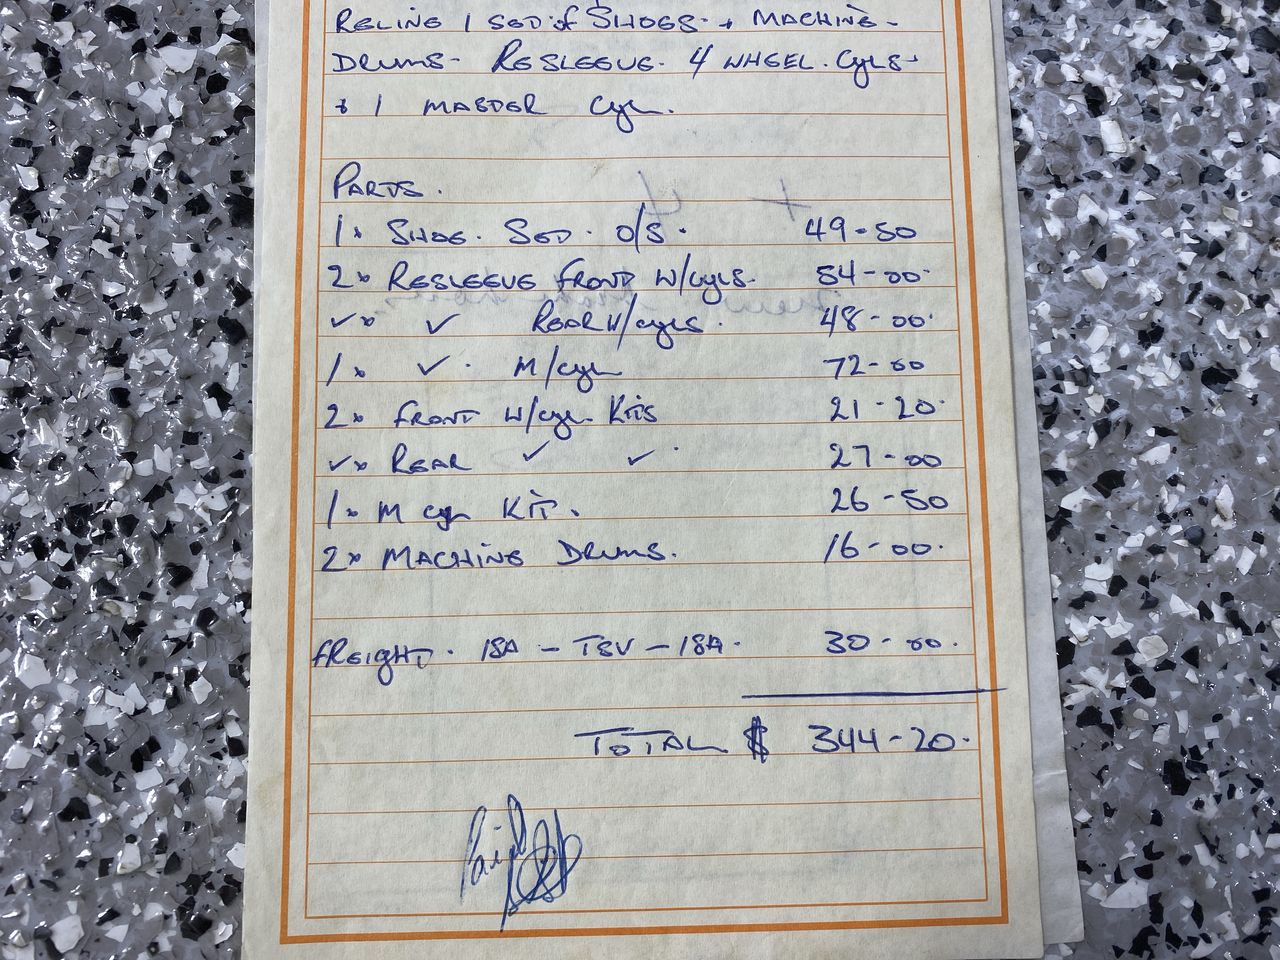 RELINE 1 SET OF SHOES - + MACHINE -
DRUMS - RESLEEVE - 4 WHEEL. CYLS -
+ 1 MASTER CYL.
PARTS.
1 x SHOE. SET. O/S. 49-50
2 x RESLEEVE FRONT W/CYLS. 54-00.
✓ x ✓ REAR W/CYLS. 48-00.
1 x ✓. M/CYL 72-00
2 x FRONT W/CYL KITS 21-20.
✓ x REAR ✓ ✓ 27-00
1 x M CYL KIT. 26-50
2 x MACHINE DRUMS. 16-00.
FREIGHT. ISA - TSV - ISA. 30-00.
TOTAL $ 344-20.
Paid